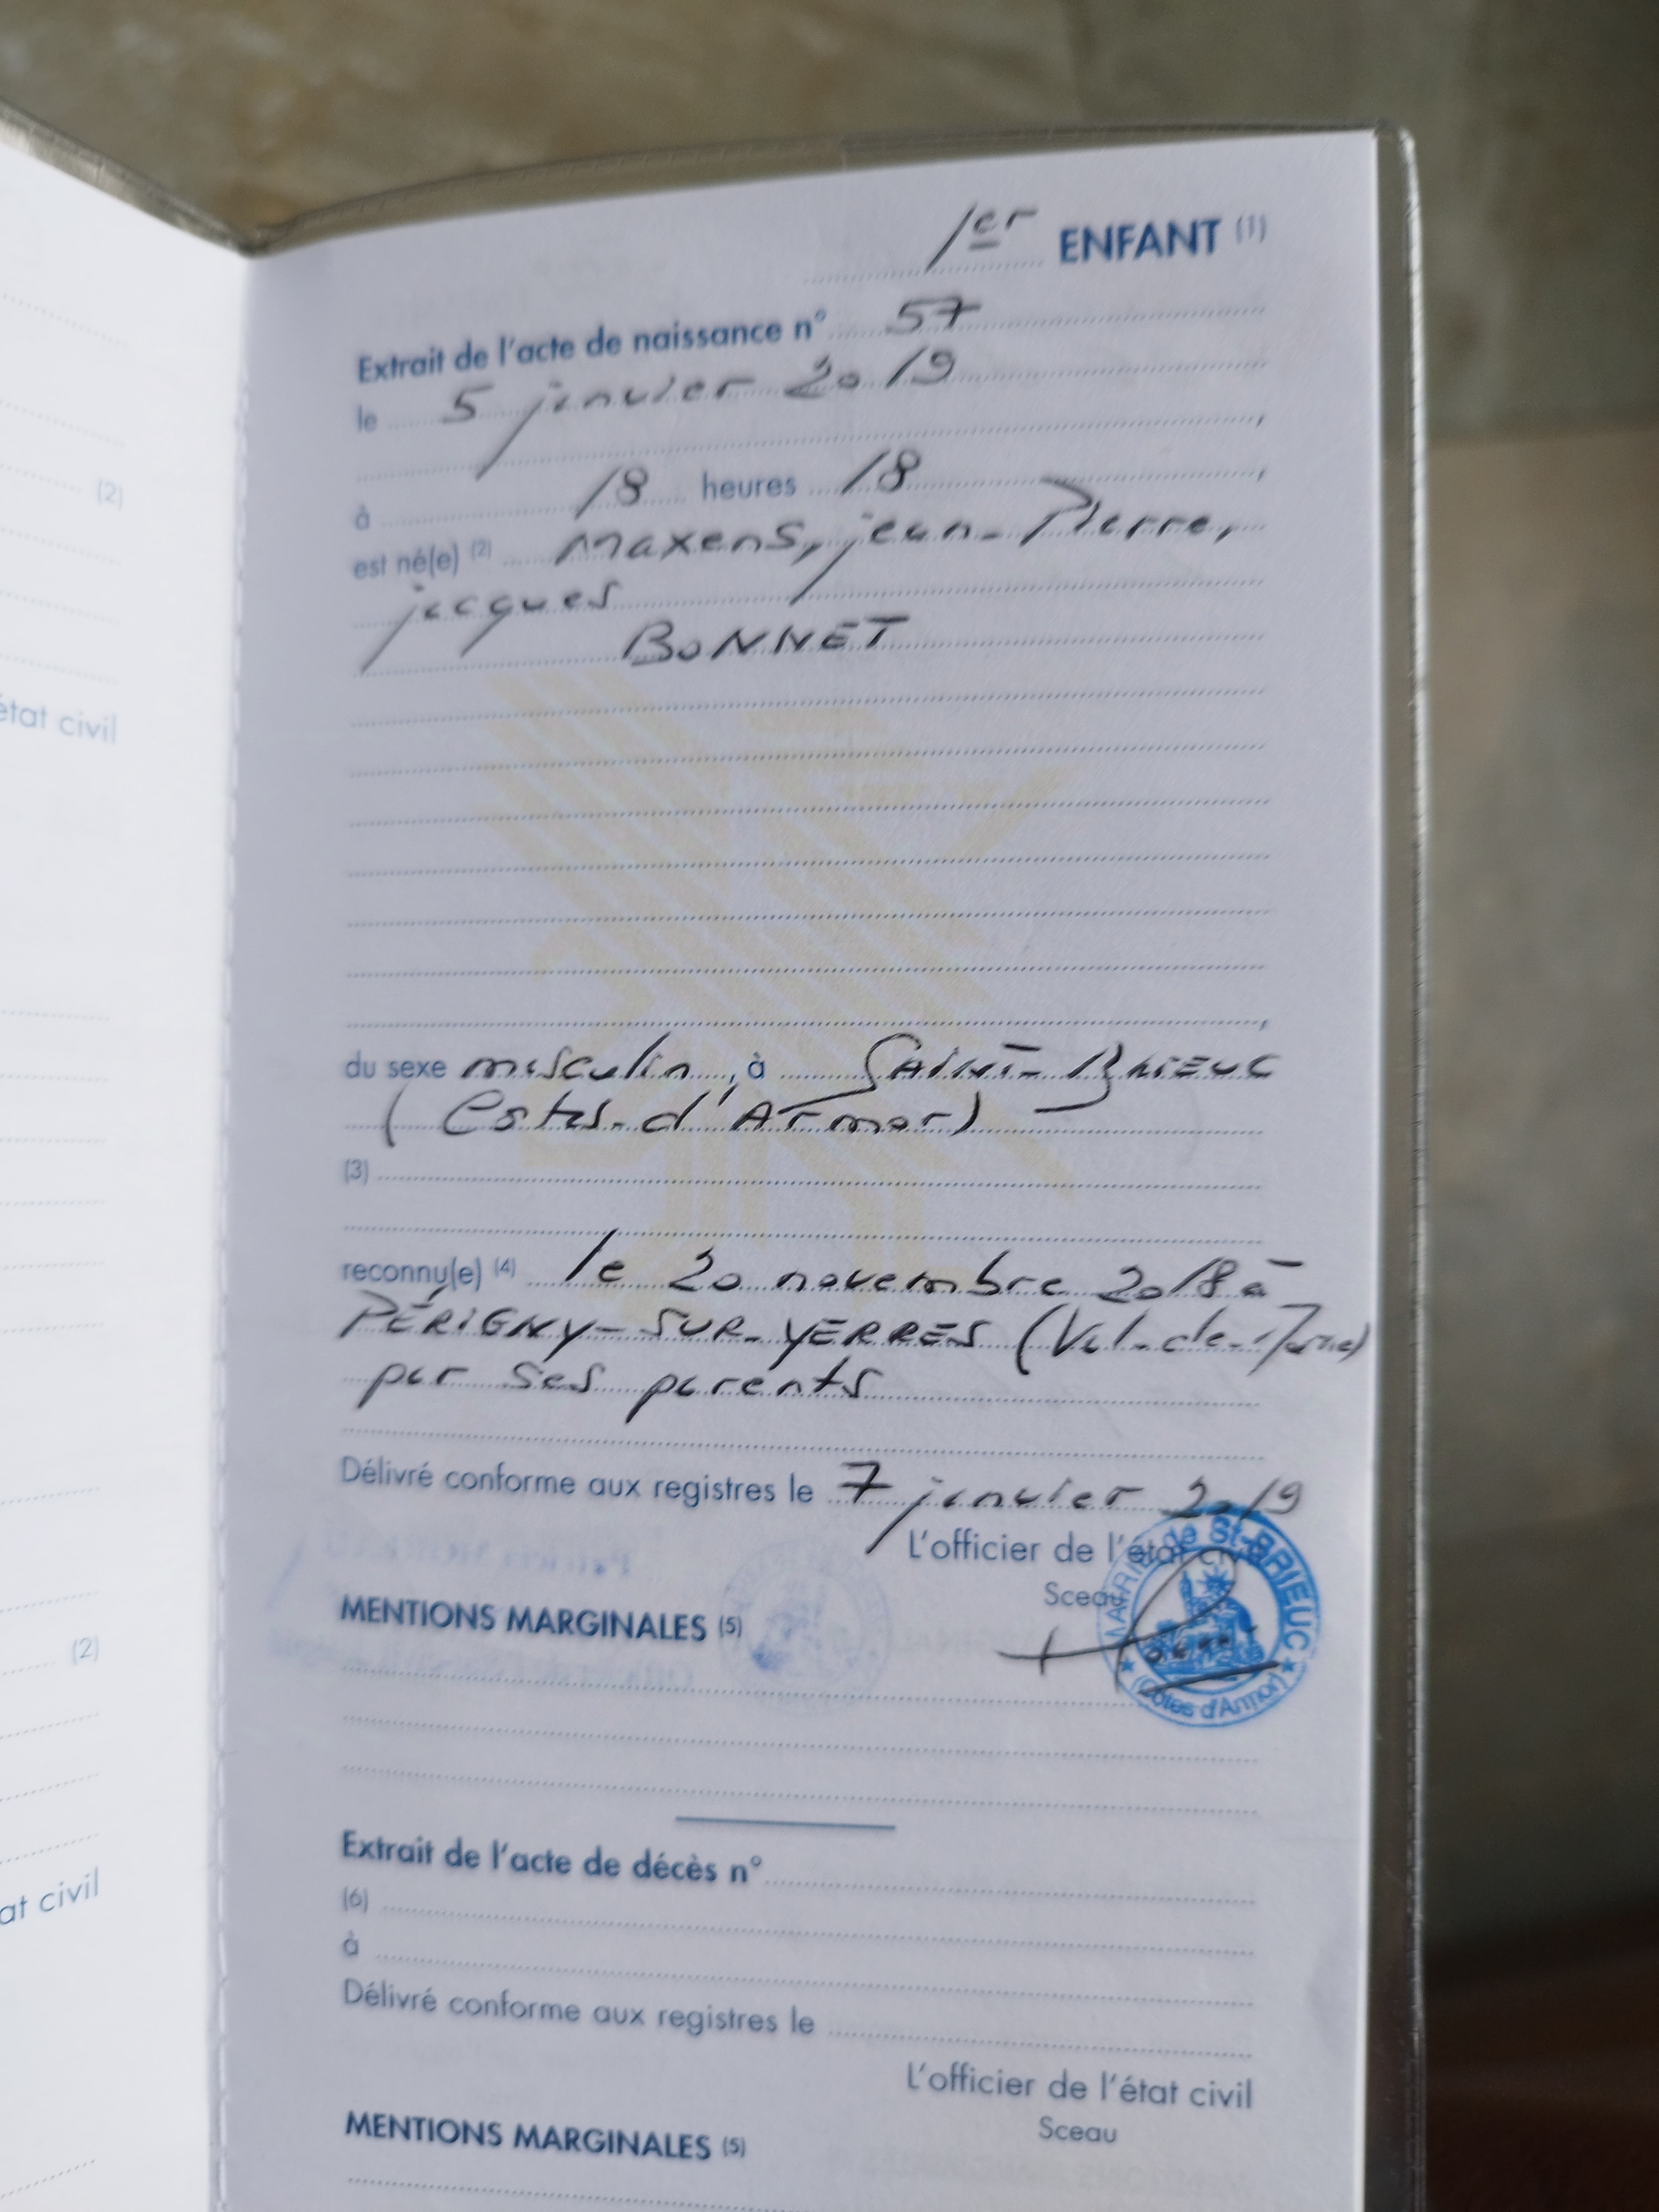 1er ENFANT (1)
Extrait de l'acte de naissance n° 57
le 5 janvier 2019
,
à 18 heures 18 ,
est né(e) (2) Maxens, jean-Pierre,
jacques
BONNET
,
du sexe masculin, à SAINT-BRIEUC
(Côtes-d'Armor)
(3)
reconnu(e) (4) le 20 novembre 2018 à
PÉRIGNY-SUR-YERRES (Val-de-Marne)
par ses parents
Délivré conforme aux registres le 7 janvier 2019
L'officier de l'état civil
Sceau
MAIRIE de St-BRIEUC
(Côtes d'Armor)
MENTIONS MARGINALES (5)
Extrait de l'acte de décès n°
(6)
à
Délivré conforme aux registres le
L'officier de l'état civil
Sceau
MENTIONS MARGINALES (5)
(2)
état civil
(2)
at civil